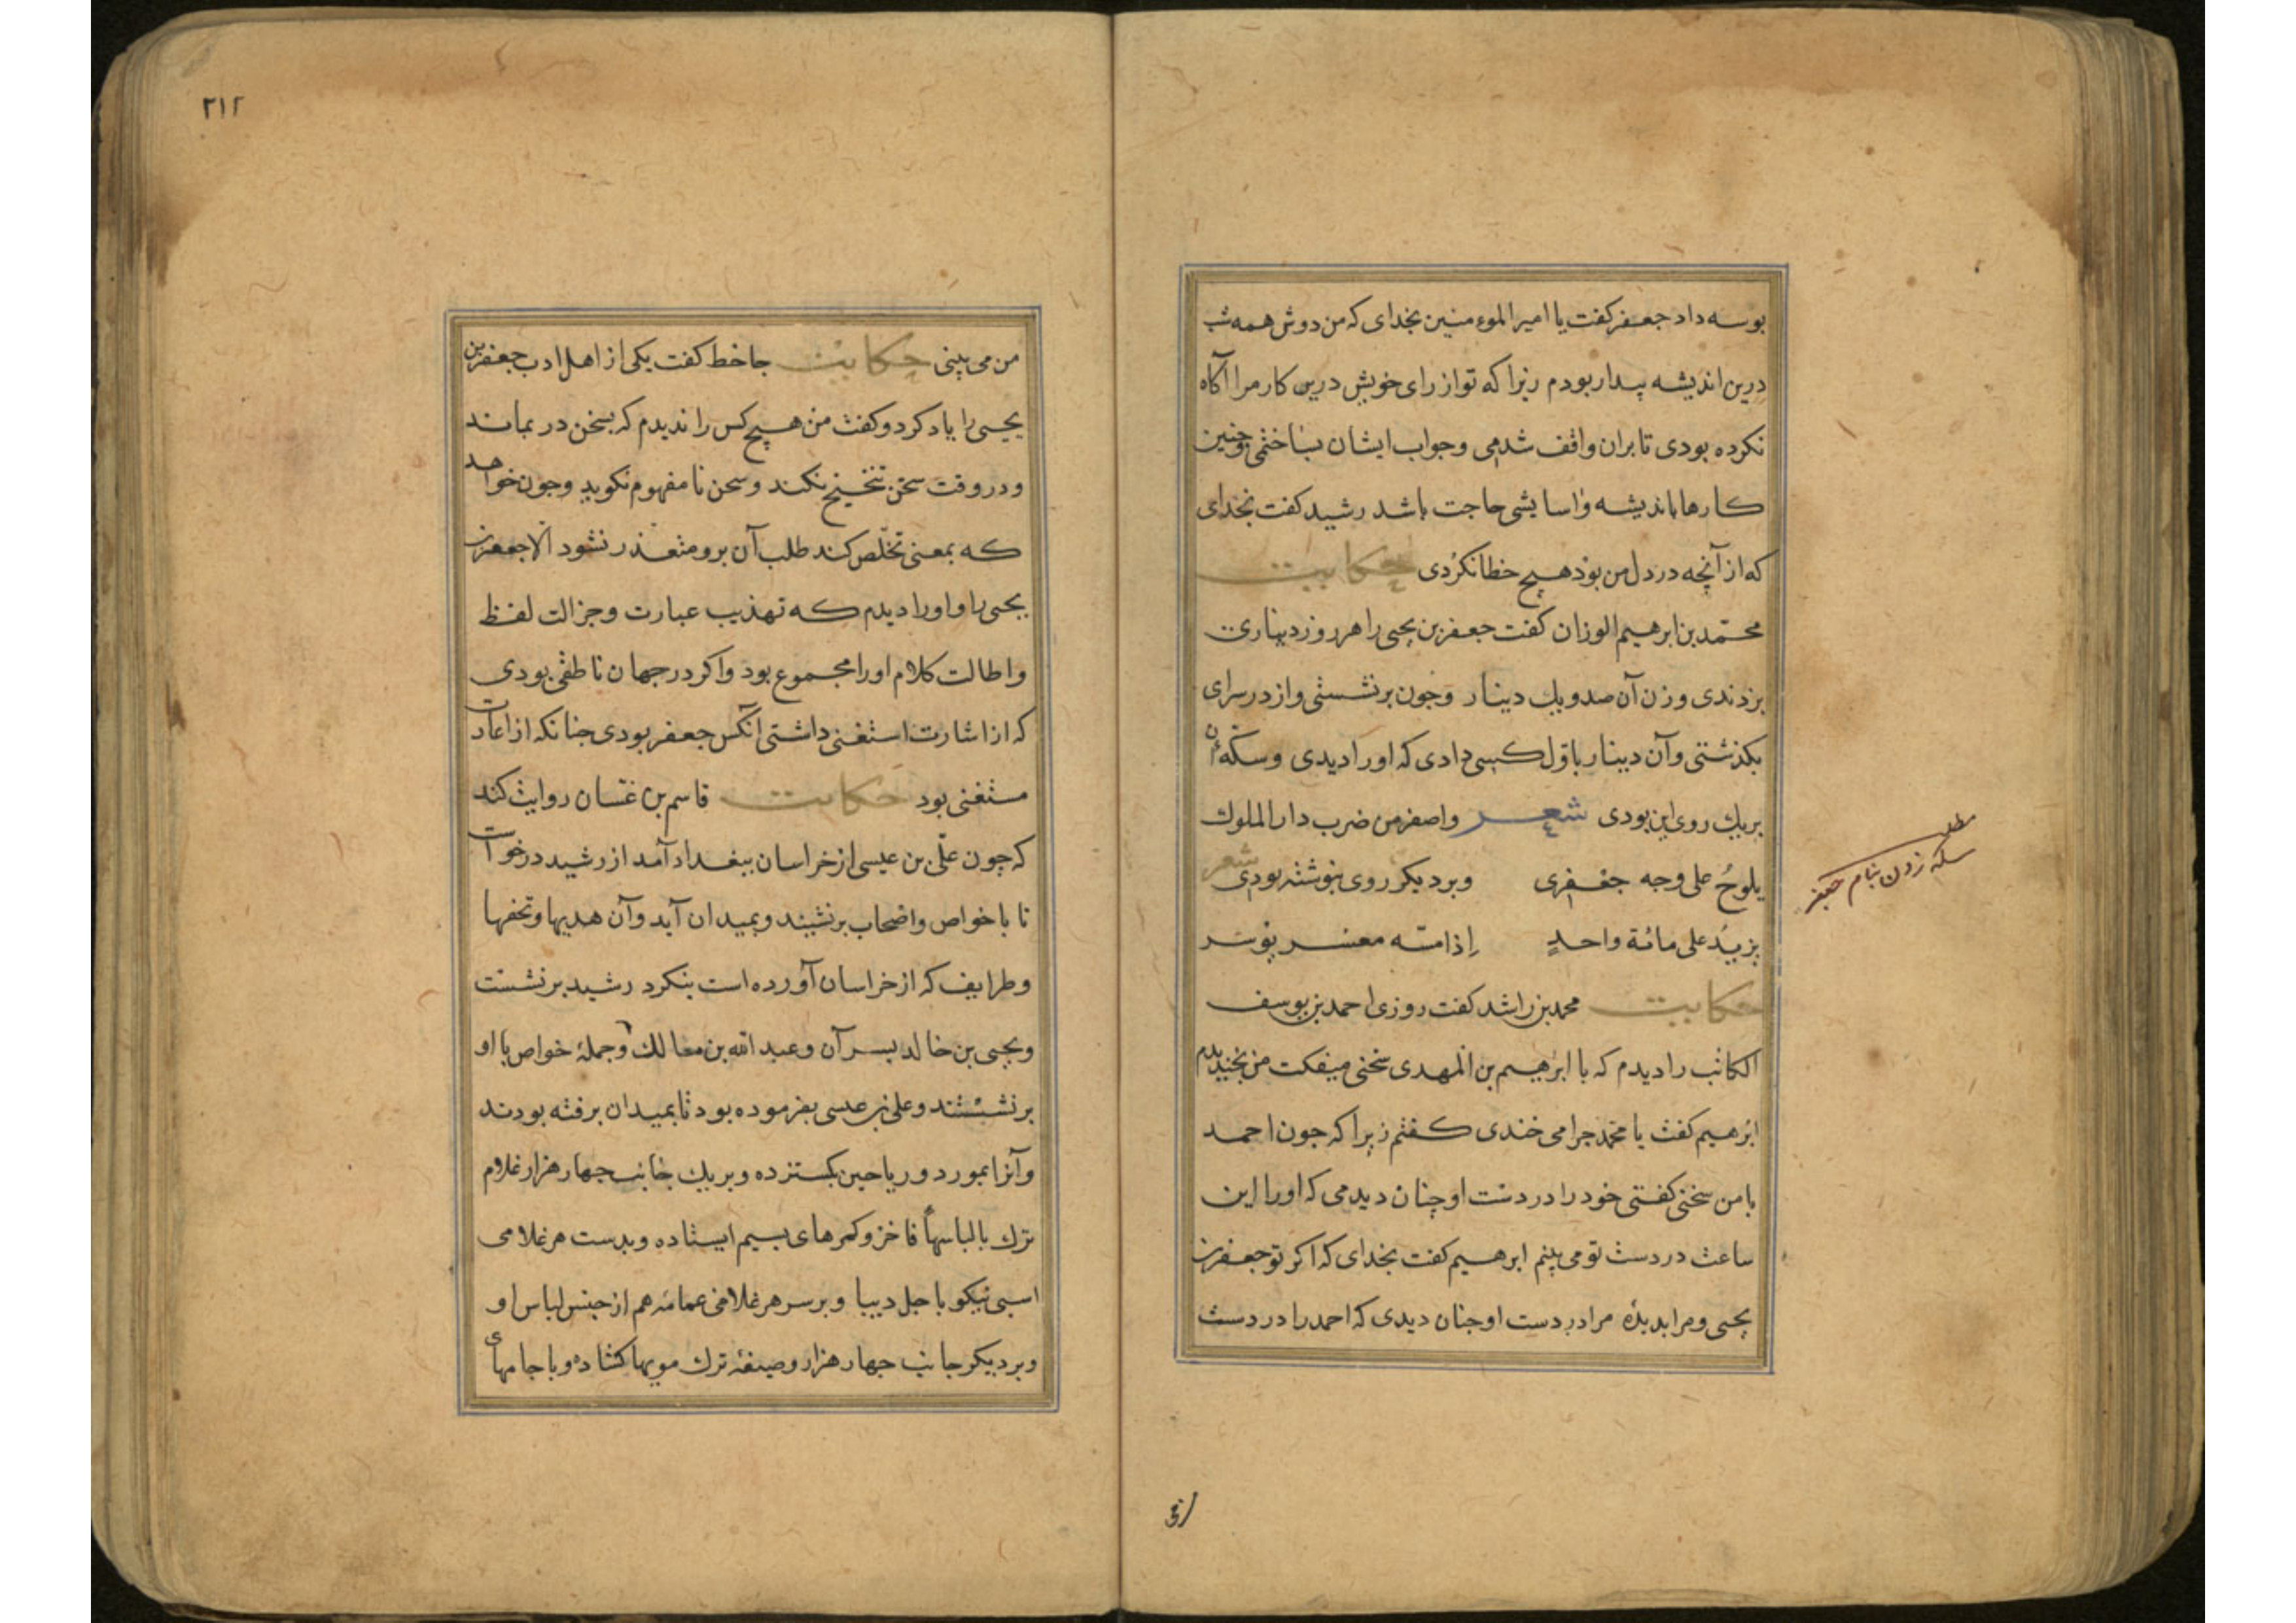 بوسه داد جعفر کفت یا امیر الموءمنین بخدای که من دوش همه شب
درین اندیشه بیدار بودم زیرا که تو از رای خویش درین کار مرا آکاه
نکرده بودی تا بران واقف شدمی وجواب ایشان بساختمی وجنین
کارها باندیشه واسایشی حاجت باشد رشید کفت بخدای
که از آنچه در دل من بود هیچ خطا نکردی حکایت
محمّد بن ابرهیم الوزان کفت جعفر بن یحیی را هر روز دیناری
بزدندی وزن آن صد ویك دینار وجون برنشستی واز در سرای
بکذشتی وآن دینار باوّل کسی دادی که اورا دیدی وسکّه آن
بریك روی این بودی شعر واصفر من ضرب دار الملوك
یلوحُ علی وجهه جعفری وبر دیکر روی نبوشته بودی شعر
یزیدُ علی مائة واحدٍ إذا مسّه معسر یوسر
حکایت محمد بن راشد کفت روزی احمد بن یوسف
الکاتب را دیدم که با ابرهیم بن المهدی سخنی میفکت من بخندیدم
ابرهیم کفت یا محمد جرا می خندی کفتم زیرا که جون احمد
با من سخنی کفتی خود را در دست او چنان دیدمی که اورا این
ساعت در دست تو می بینم ابرهیم کفت بخدای که اکر تو جعفر بن
یحیی ومرا بدیدهٔ مرا در دست او جنان دیدی که احمد را در دست
مطلب
سکه زدن بنام جعفر
۲۱۲
من می بینی حکایت جاحظ کفت یکی از اهل ادب جعفر بن
یحیی را یاد کرد وکفت من هیچ کس را ندیدم که بسخن در بماند
ودر وقت سخن تنحنح نکند وسخن نا مفهوم نکوید وجون خواهد
که بمعنی تخلّص کند طلب آن برو متعذر نشود الا جعفر بن
یحیی را واورا دیدم که تهذیب عبارت وجزالت لفظ
واطالت کلام اورا مجموع بود واکر در جهان ناطقی بودی
که از اشارت استغنی داشتی آنکس جعفر بودی جنانکه از اعادت
مستغنی بود حکایت قاسم بن غسّان روایت کند
که چون علّی بن عیسی از خراسان ببغداد آمد از رشید درخواست
تا با خواص واصحاب برنشیند وبمیدان آید وآن هدیها وتحفها
وطرایف که از خراسان آورده است بنکرد رشید برنشست
ویحیی بن خالد بسر آن وعبد الله بن مالك وجملهٔ خواص با او
برنشستند وعلی بن عیسی بفرموده بود تا بمیدان برفته بودند
وآنرا بمورد وریاحین بکسترده وبریك جانب جهار هزار غلام
ترك با لباسهای فاخر وکمرهای بسیم ایستاده وبدست هر غلامی
اسبی نیکو با جل دیبا وبر سر هر غلامی عمامه هم از جنس لباس او
وبر دیکر جانب جهار هزار وصیفهٔ ترك مویها کشاده وبا جامهای